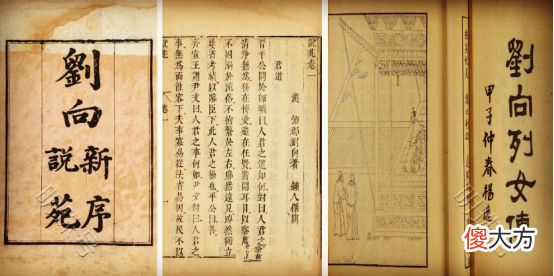 劉向
新序
說苑
說苑卷一
漢 沛郡劉向著 鍾人傑閱
君道
晉平公問於師曠曰人君之道如何對曰人君之道
清淨無爲務在博愛趨在任賢廣開耳目以察萬方
不固溺於流俗不拘繫於左右廓然遠見踔然獨立
屢省考績以臨臣下此人君之操也平公曰善
齊宣王謂尹文曰人君之事何如尹文對曰人君之
事無爲而能容下夫事寡易從法省易因故民不以
劉向列女傳
甲子仲春楊
傻大方